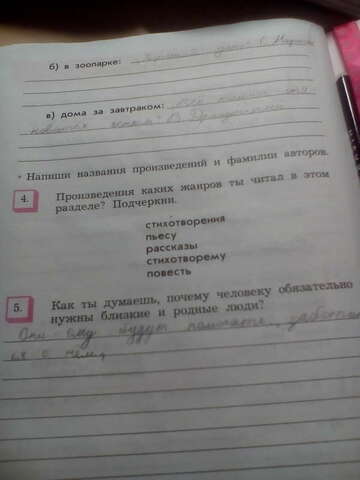 б) в зоопарке:
в) дома за завтраком:
В. Драгунский
* Напиши названия произведений и фамилии авторов.
4. Произведения каких жанров ты читал в этом
разделе? Подчеркни.
стихотворения
пьесу
рассказы
стихотворему
повесть
5. Как ты думаешь, почему человеку обязательно
нужны близкие и родные люди?
Они ему будут помогать,
о нем,